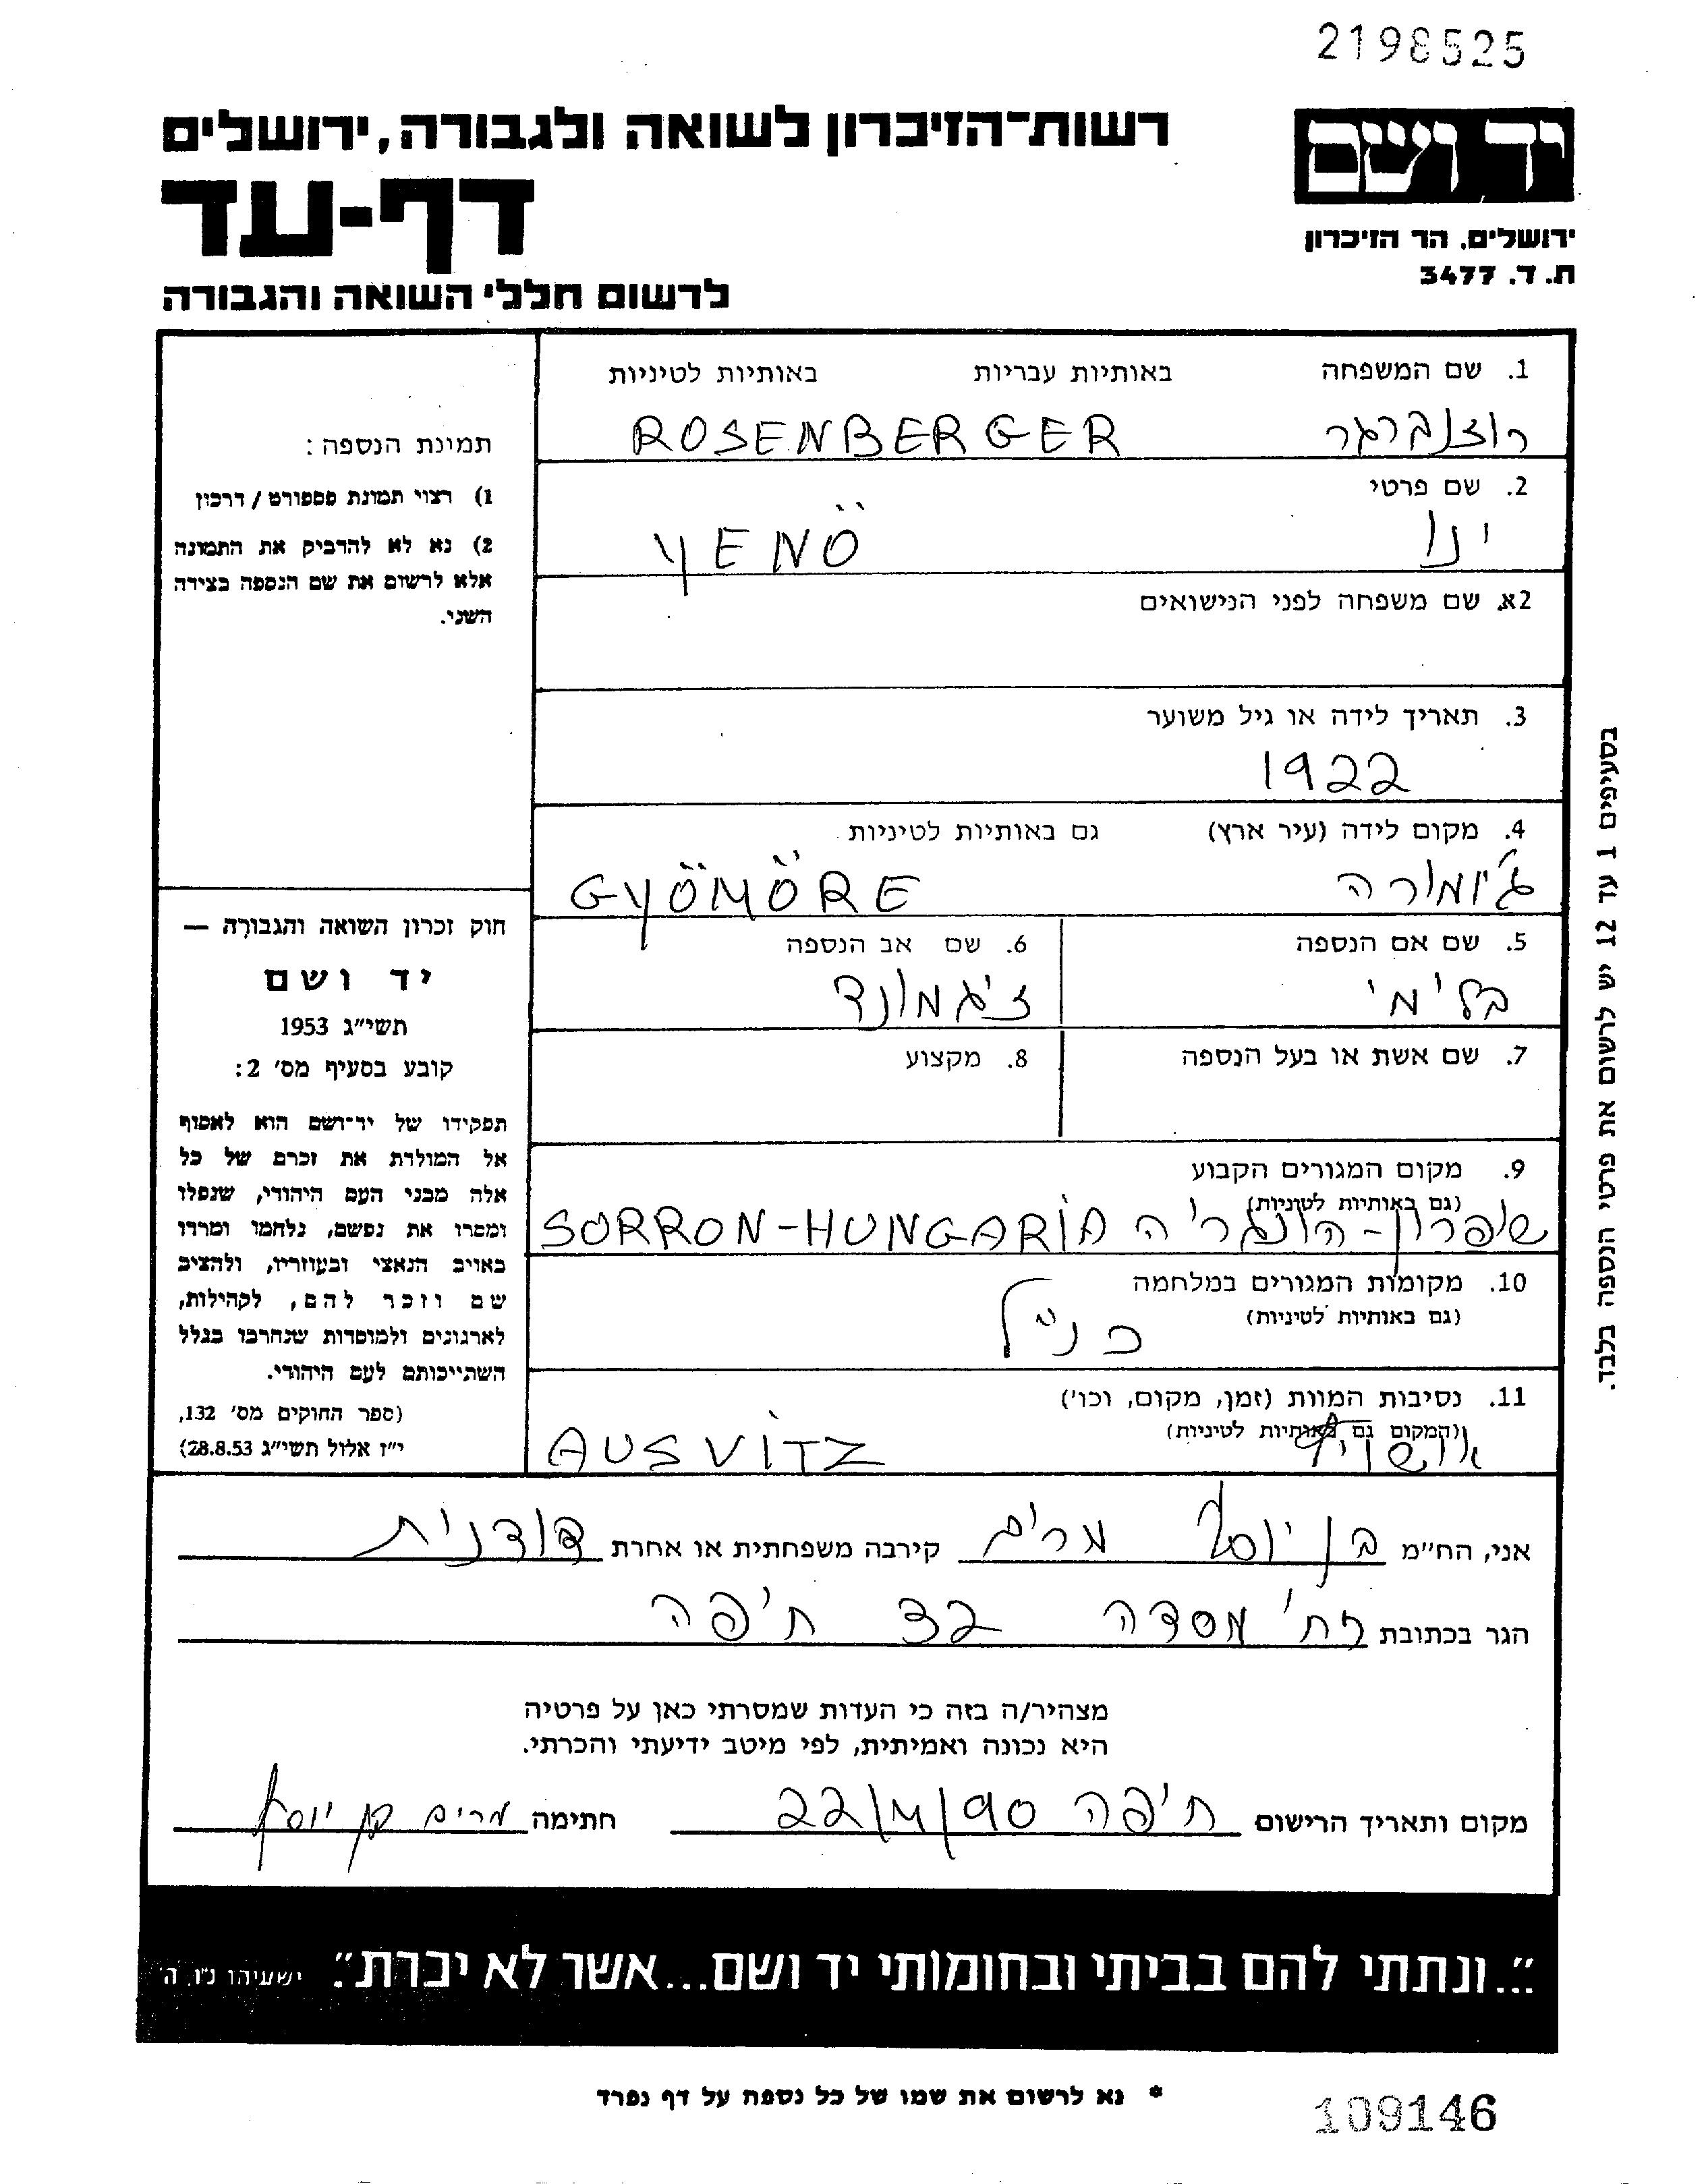 2198525
יד ושם
ירושלים, הר הזיכרון
ת. ד. 3477
רשות־הזיכרון לשואה ולגבורה, ירושלים
דף-עד
לרשום חללי השואה והגבורה
1. שם המשפחה באותיות עבריות באותיות לטיניות
רוזנברגר ROSENBERGER
2. שם פרטי
ינו YENÖ
2א. שם משפחה לפני הנישואים
3. תאריך לידה או גיל משוער
1922
4. מקום לידה (עיר ארץ) גם באותיות לטיניות
ג'יומורה GYÖMÖRE
5. שם אם הנספה 6. שם אב הנספה
בלימי זיגמונד
7. שם אשת או בעל הנספה 8. מקצוע
9. מקום המגורים הקבוע
(גם באותיות לטיניות)
שופרון-הונגריה SORRON-HUNGARIA
10. מקומות המגורים במלחמה
(גם באותיות לטיניות)
כנ"ל
11. נסיבות המוות (זמן, מקום, וכו')
(המקום גם באותיות לטיניות)
אושויץ AUSVITZ
תמונת הנספה:
1) רצוי תמונת פספורט / דרכון
2) נא לא להדביק את התמונה
אלא לרשום את שם הנספה בצידה
השני.
חוק זכרון השואה והגבורה —
יד ושם
תשי"ג 1953
קובע בסעיף מס' 2:
תפקידו של יד־ושם הוא לאסוף
אל המולדת את זכרם של כל
אלה מבני העם היהודי, שנפלו
ומסרו את נפשם, נלחמו ומרדו
באויב הנאצי ובעוזריו, ולהציב
שם וזכר להם, לקהילות,
לארגונים ולמוסדות שנחרבו בגלל
השתייכותם לעם היהודי.
(ספר החוקים מס' 132,
י"ז אלול תשי"ג 28.8.53)
בסעיפים 1 עד 12 יש לרשום את פרטי הנספה בלבד.
אני, הח"מ בן יוסף מרים קירבה משפחתית או אחרת דודנית
הגר בכתובת רח' מסדה 32 חיפה
מצהיר/ה בזה כי העדות שמסרתי כאן על פרטיה
היא נכונה ואמיתית, לפי מיטב ידיעתי והכרתי.
מקום ותאריך הרישום חיפה 22/4/90 חתימה מרים בן יוסף
"...ונתתי להם בביתי ובחומותי יד ושם...אשר לא יכרת". ישעיהו נ"ו, ה'
* נא לרשום את שמו של כל נספה על דף נפרד
109146